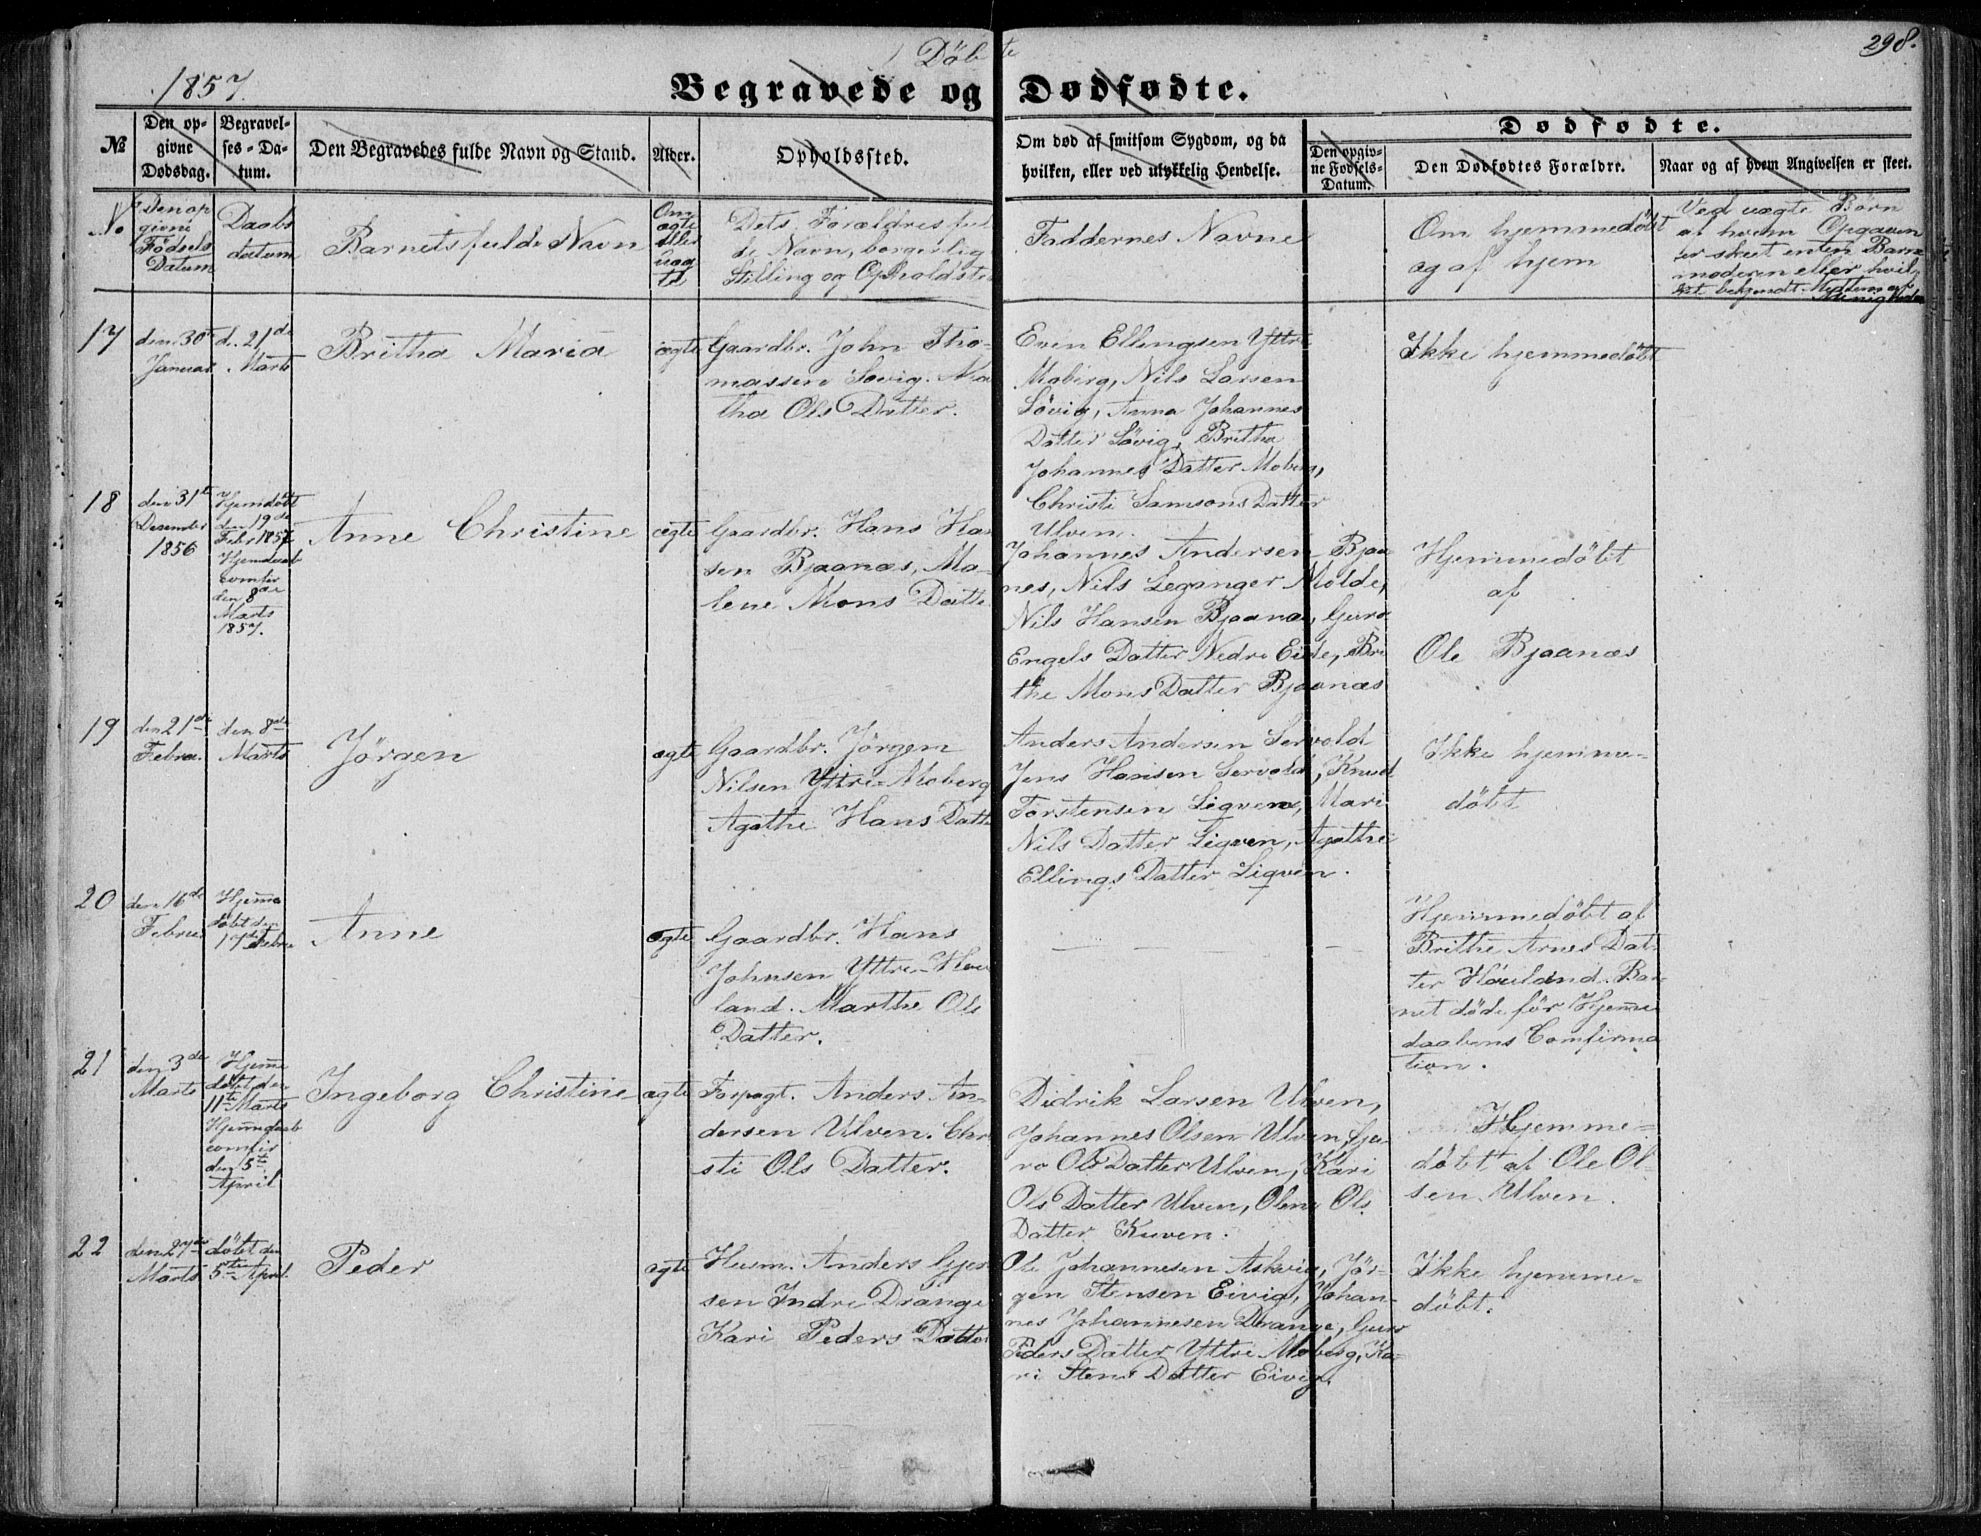 298.
Döbte
1857.
Begravede og Dødfødte.
Dødfødte.
№
Den opgivne Dødsdag.
Begravelses-Datum.
Den Begravedes fulde Navn og Stand.
Alder.
Opholdssted.
Om død af smitsom Sygdom, og da
hvilken, eller ved ulykkelig Hendelse.
Den opgivne Fødsels-Datum.
Den Dødfødtes Forældre.
Naar og af hvem Angivelsen er skeet.
No
Den op
givne
Födsels
Datum
Daabs
datum
Barnets fulde Navn
Om
ægte
eller
uæg
te
Dets Forældres ful
de Navn, borgerlig
Stilling og Opholdste
Faddernes Navne
Om hjemmedöbt
og af hjem
Ved uægte Börn
af hvem Opgaven
er skeet enten Barne
moderen eller hvil
ket bekjendt Medlem af
Menigheden
17
den 30te
Januar
d. 21de
Marts
Britha Maria
ægte
Gaardbr. John Tho-
massen Sövig. Ma
tha Ols Datter.
Even Ellingsen Yttre
Moberg, Nils Larsen
Sövig, Anna Johannes
Datter Sövig, Britha
Johannes Datter Moberg,
Christi Samsons Datter
Ulven.
Ikke hjemmedöbt
18
den 31te
Desember
1856
Hjemdöbt
den 19de
Febr 1857
Hjemdaab
comfir
den 8de
Marts
1857.
Anne Christine
ægte
Gaardbr. Hans Han
sen Bjaanæs, Ma-
lene Mons Datte
Johannes Andersen Bjaa
nes, Nils Leganger Molde,
Nils Hansen Bjaanæ, Guro
Engels Datter Nedre Eide, Bri
the Mons Datter Bjaanæs
Hjemmedöbt
af
Ole Bjaanæs
19
den 21de
Febru.
den 8de
Marts
Jörgen
ægte
Gaardbr. Jörgen
Nilsen Yttre Moberg
Agathe Hans Datt
Anders Andersen Servold
Jens Hansen Servold, Knud
Torstensen Ligven, Mari
Nils Datter Ligven, Agathe
Ellings Datter Ligven.
Ikke hjemme-
döbt
20
den 16de
Febru.
Hjemme
döbt den
17de Febru
Anne
ægte
Gaardbr. Hans
Johnsen Yttre Hou
land. Marthe Ols
Datter.
Hjemmedöbt af
Brithe Arnes Dat
ter Houland. Bar
net döde för Hjemme
daabens Comfirma
tion.
21
den 3de
Marts
Hjemme
döbt den
11te Marts
Hjemmdaab
comfir
den 5te
April
Ingeborg Christine
ægte
Forpagt. Anders An-
dersen Ulven. Chri
sti Ols Datter.
Didrik Larsen Ulven,
Johannes Olsen Ulven, Gu-
ro Ols Datter Ulven, Kari
Ols Datter Ulven, Olene Ols
Datter Kuven.
Hjemme-
döbt af Ole Ol-
sen Ulven.
22
den 27de
Marts
döbt den
5te April
Peder
ægte
Husm. Anders Gjer
sen Indre Drange
Kari Peders Datte
Ole Johannesen Askvig, Jör-
gen Stensen Eivig, Johan-
nes Johannesen Drange, Guro
Peders Datter Yttre Moberg, Ka-
ri Stens Datter Eivig.
Ikke hjemme-
döbt.